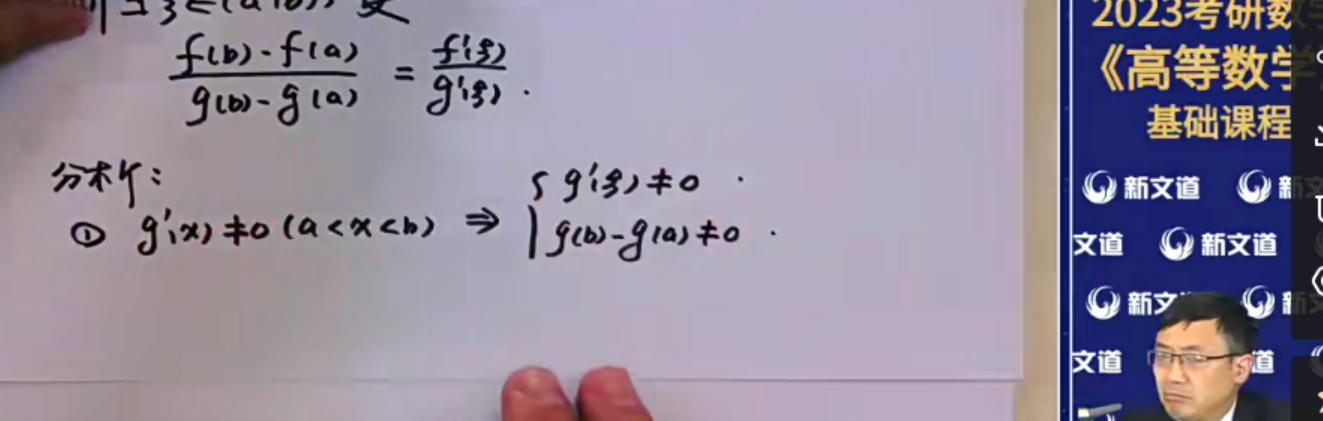 则 ∃ξ∈(a,b), 使
f(b)-f(a) / g(b)-g(a) = f'(ξ) / g'(ξ) .
分析:
① g'(x)≠0 (a<x<b) ⇒ { g'(ξ)≠0 .
g(b)-g(a)≠0 .
2023考研数学
《高等数学
基础课程
新文道 新
文道 新文道
新文 新
文道 道